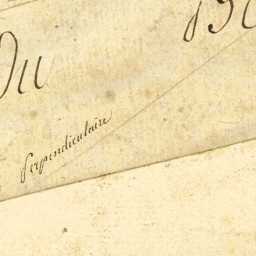 Du
Perpendiculaire